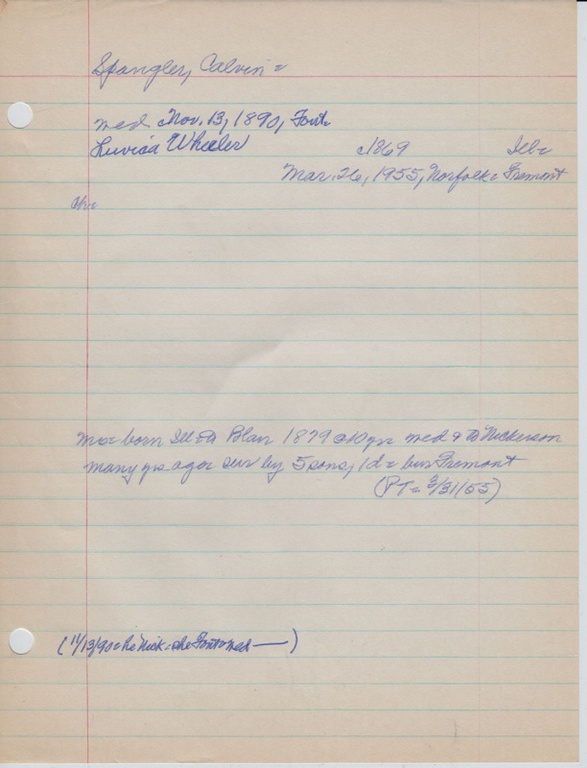 Spangler, Calvin=
med Nov. 13, 1890, Font=
Luvica Wheeler c1869 Ill=
Mar. 26, 1955, Norfolk= Fremont
ch=
mo= born Ill= to Blair 1879 @10yr= med & to Nickerson
many yrs ago= sur by 5 sons, 1d= bur Fremont
(PT= 3/31/55)
(11/13/90= he Nick= she Font= med —)